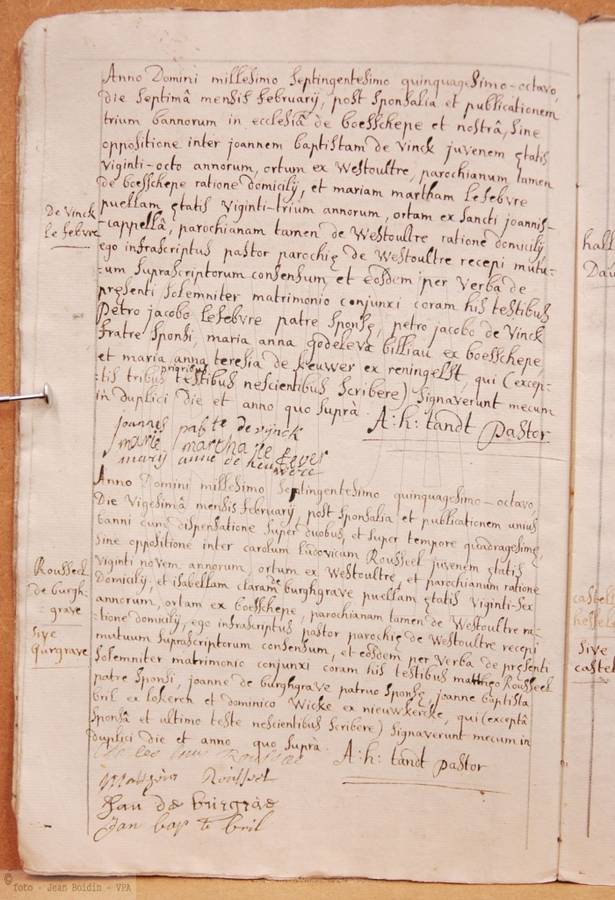 Anno Domini millesimo septingentesimo quinquagesimo-octavo,
die septimâ mensis februarij, post sponsalia et publicationem
trium bannorum in ecclesiâ de boesschepe et nostrâ, sine
oppositione inter joannem baptistam de Vinck juvenem ętatis
viginti-octo annorum, ortum ex Westoultre, parochianum tamen
de boesschepe ratione domicilij, et mariam martham Lefebvre
puellam ętatis viginti-trium annorum, ortam ex sancti joannis-
De Vinck
Lefebvre
-cappellâ, parochianam tamen de Westoultre ratione domicilij
ego infrascriptus pastor parochię de Westoultre recepi mutu-
:um suprascriptorum consensum et eosdem per verba de
pręsenti solemniter matrimonio conjunxi coram his testibus
Petro jacobo Lefebvre patre sponsę, petro jacobo de Vinck
fratre sponsi, maria anna godeleva billiau ex boesschepe,
et maria anna teresia de keuwer ex reningelst, qui (excep-
:tis tribus prioribus testibus nescientibus scribere) signaverunt mecum
in duplici die et anno quo suprà. A: h: tandt Pastor
joannes bap te devijnck
marie martha le fever
marij anne de
Anno Domini millesimo septingentesimo quinquagesimo-octavo,
Die vigesimâ mensis februarij, post sponsalia et publicationem unius
banni cum dispensatione super duobus, et super tempore quadragesimę,
sine oppositione inter carolum ludovicum Rousseel juvenem ętatis
viginti novem annorum, ortum ex Westoultre, et parochianum ratione
Rousseel
de burgh-
:grave
sive
Burgrave
domicilij, et isabellam claram de burghgrave puellam ętatis viginti-sex
annorum, ortam ex boesschepe, parochianam tamen de Westoultre ra-
:tione domicilij, ego infrascriptus pastor parochię de Westoultre recepi
mutuum suprascriptorum consensum, et eosdem per verba de pręsenti
solemniter matrimonio conjunxi coram his testibus matthęo Rousseel
patre sponsi, joanne de burghgrave patruo sponsę, joanne baptista
bril ex lokeren et dominico Wicke ex nieuwkercke, qui (exceptâ
sponsâ et ultimo teste nescientibus scribere) signaverunt mecum in
duplici die et anno quo suprà. A: h: tandt pastor
Charles louis Roussel
Mattheus Roussel
Jan de burgrae
Jan bap te bril
hall
Dau
castel
hessele
sive
castel
© foto - Jean Boidin - VPA